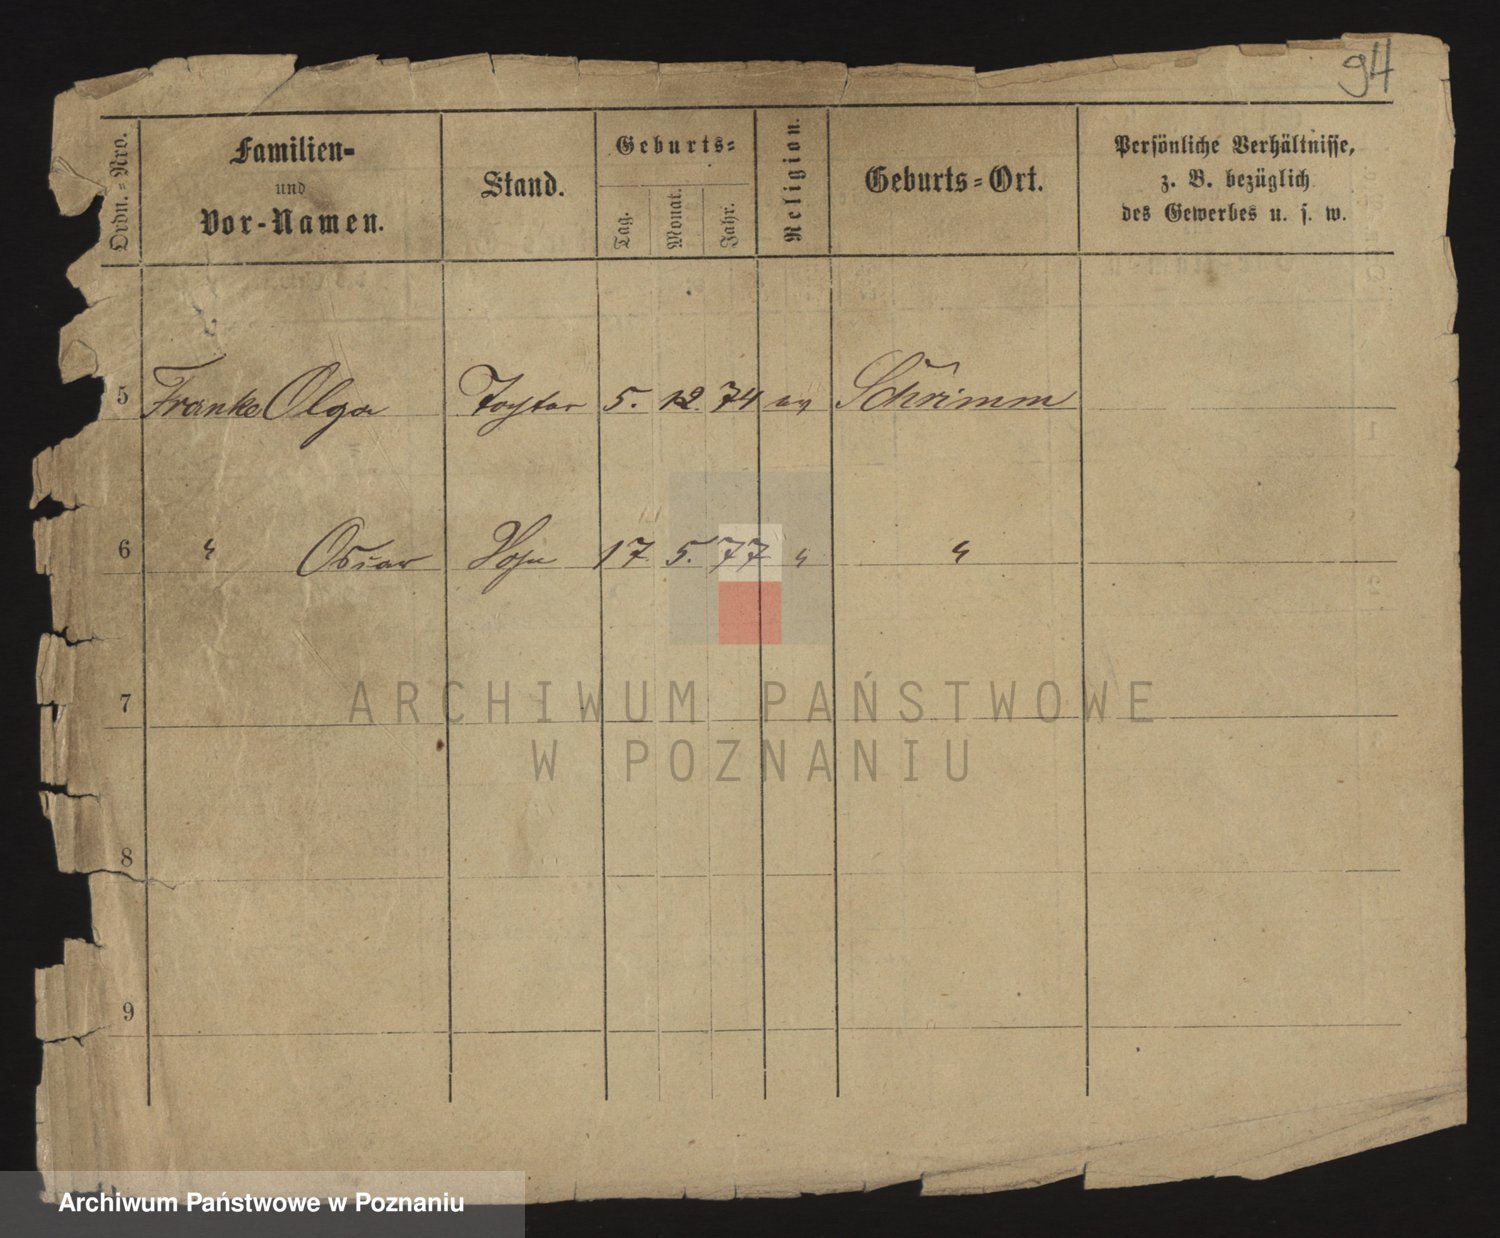 94
Ordn.=Nro.
Familien-
und
Vor-Namen.
Stand.
Geburts=
Tag.
Monat.
Jahr.
Religion.
Geburts=Ort.
Persönliche Verhältnisse,
z. B. bezüglich
des Gewerbes u. s. w.
5 Franke Olga Tochter 5. 12. 74 ev Schrimm
6 " Oscar Sohn 17 5. 77 " "
7
ARCHIWUM PAŃSTWOWE
W POZNANIU
8
9
Archiwum Państwowe w Poznaniu